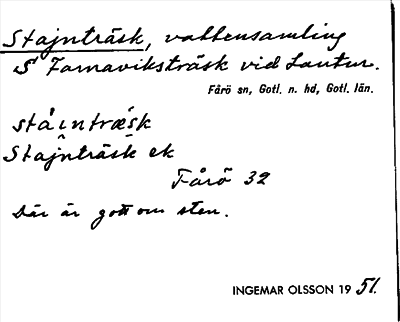 Stajnträsk, vattensamling
S Farnaviksträsk vid Lautur.
Fårö sn, Gotl. n. hd, Gotl. län.
stáintræsk
Stajnträsk ek
Fårö 32
Där är gott om sten.
INGEMAR OLSSON 1951.